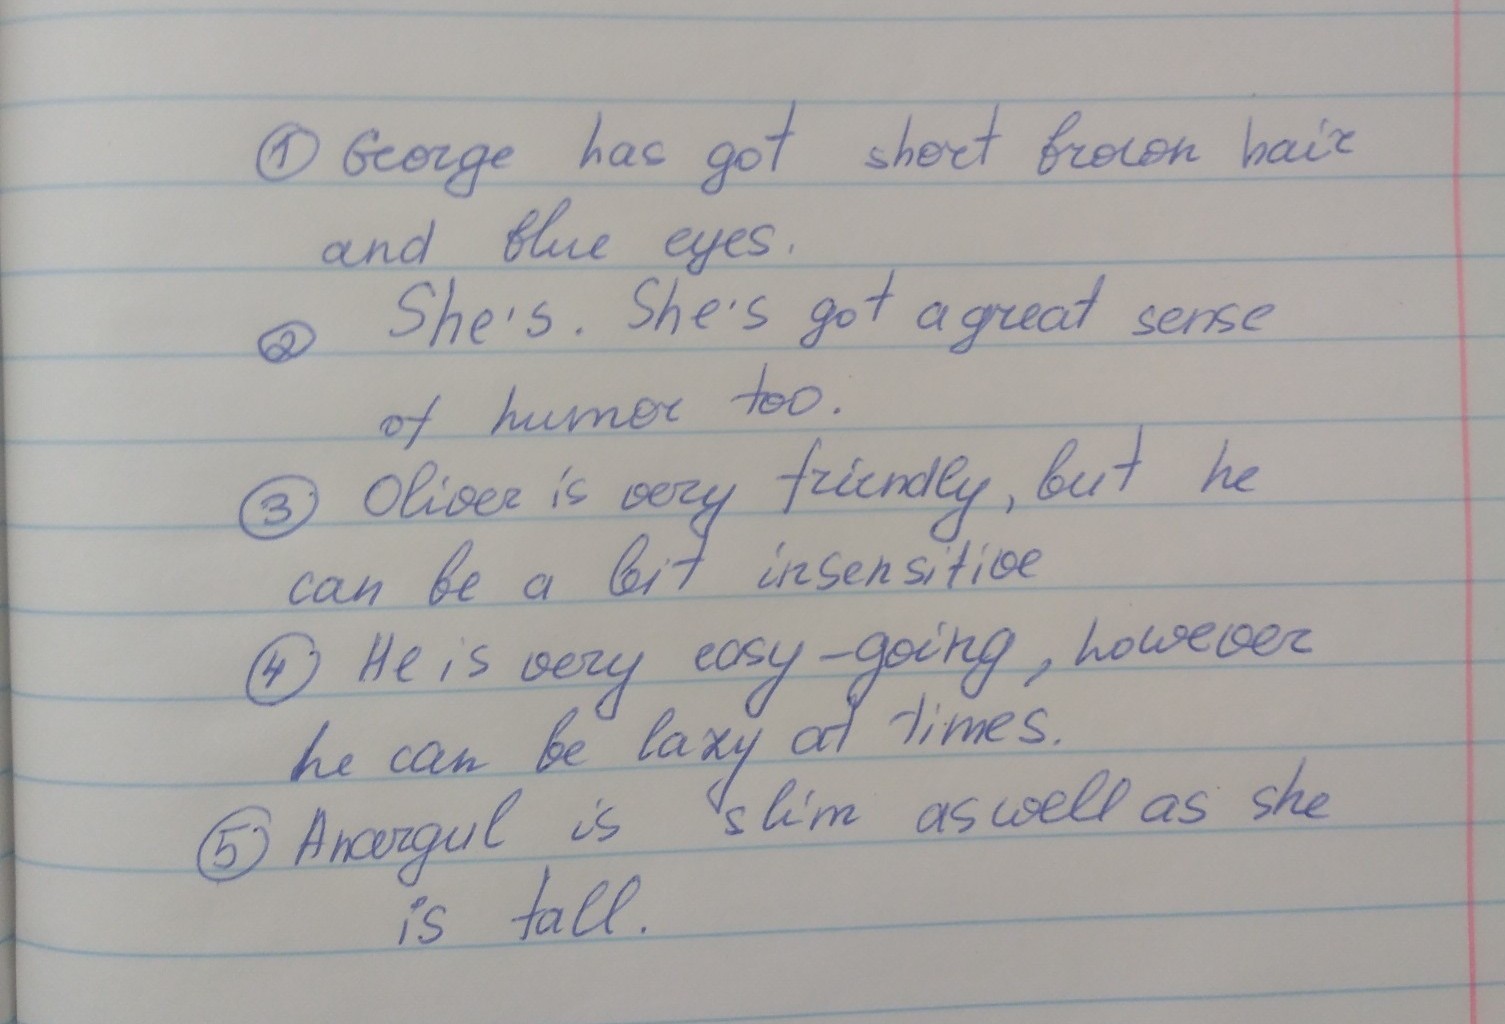 ① George has got short brown hair
and blue eyes.
② She's. She's got a great sense
of humor too.
③ Oliver is very friendly, but he
can be a bit insensitive
④ He is very easy-going, however
he can be lazy at times.
⑤ Anargul is slim as well as she
is tall.